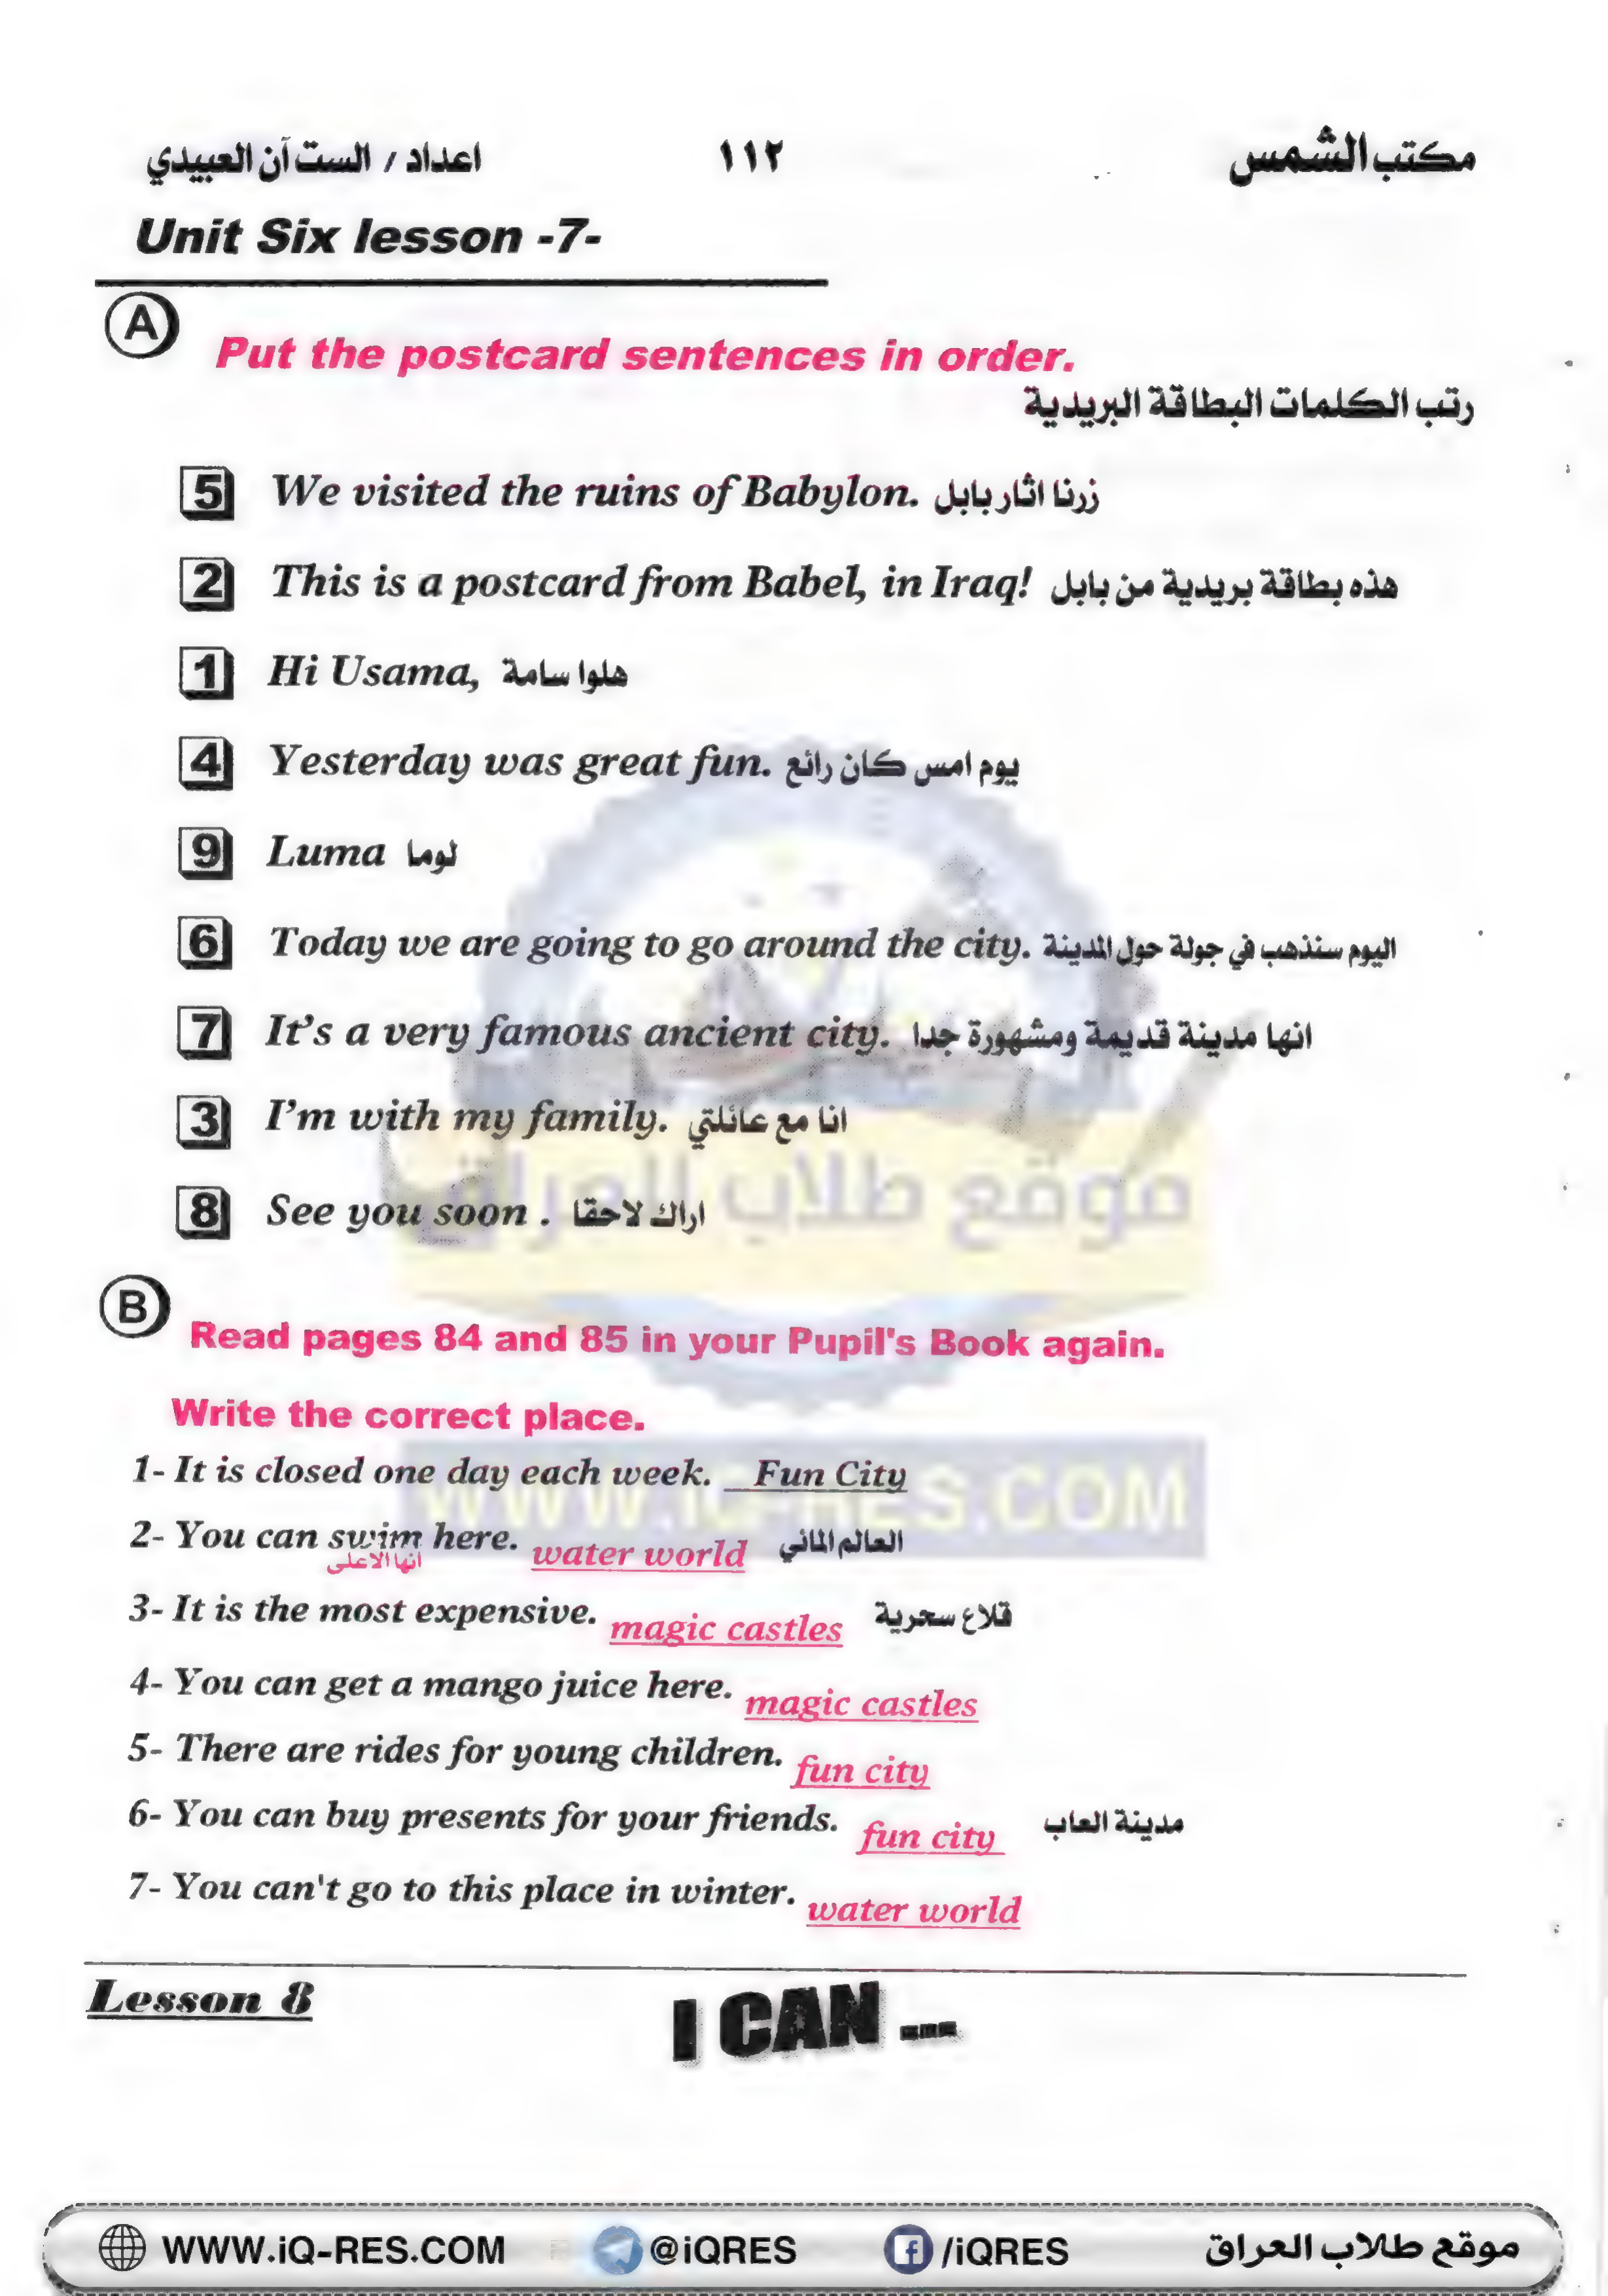 مكتب الشمس ١١٢ اعداد / الست آن العبيدي
Unit Six lesson -7-
A Put the postcard sentences in order.
رتب الكلمات البطاقة البريدية
5 We visited the ruins of Babylon. زرنا اثار بابل
2 This is a postcard from Babel, in Iraq! هذه بطاقة بريدية من بابل
1 Hi Usama, هلوا سامة
4 Yesterday was great fun. يوم امس كان رائع
9 Luma لوما
6 Today we are going to go around the city. اليوم سنذهب في جولة حول المدينة
7 It's a very famous ancient city. انها مدينة قديمة ومشهورة جدا
3 I'm with my family. انا مع عائلتي
8 See you soon . اراك لاحقا
موقع طلاب العراق
B Read pages 84 and 85 in your Pupil's Book again.
Write the correct place.
1- It is closed one day each week. Fun City
WWW.iQ-RES.COM
2- You can swim here. water world العالم المائي
انها الاعلى
3- It is the most expensive. magic castles قلاع سحرية
4- You can get a mango juice here. magic castles
5- There are rides for young children. fun city
6- You can buy presents for your friends. fun city مدينة العاب
7- You can't go to this place in winter. water world
Lesson 8
I CAN ---
WWW.iQ-RES.COM @iQRES /iQRES موقع طلاب العراق